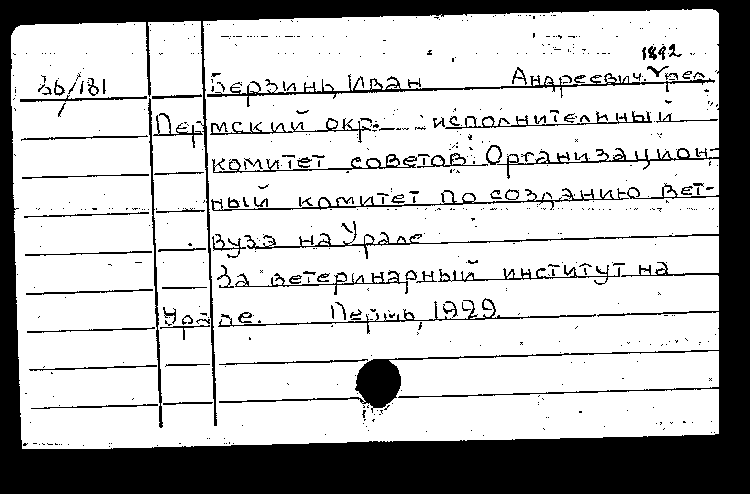 1892
36/181 Берзинь, Иван Андреевич. Ред.
Пермский окр. исполнительный
комитет советов. Организацион-
ный комитет по созданию вет-
вуза на Урале
За ветеринарный институт на
Урале. Пермь, 1929.